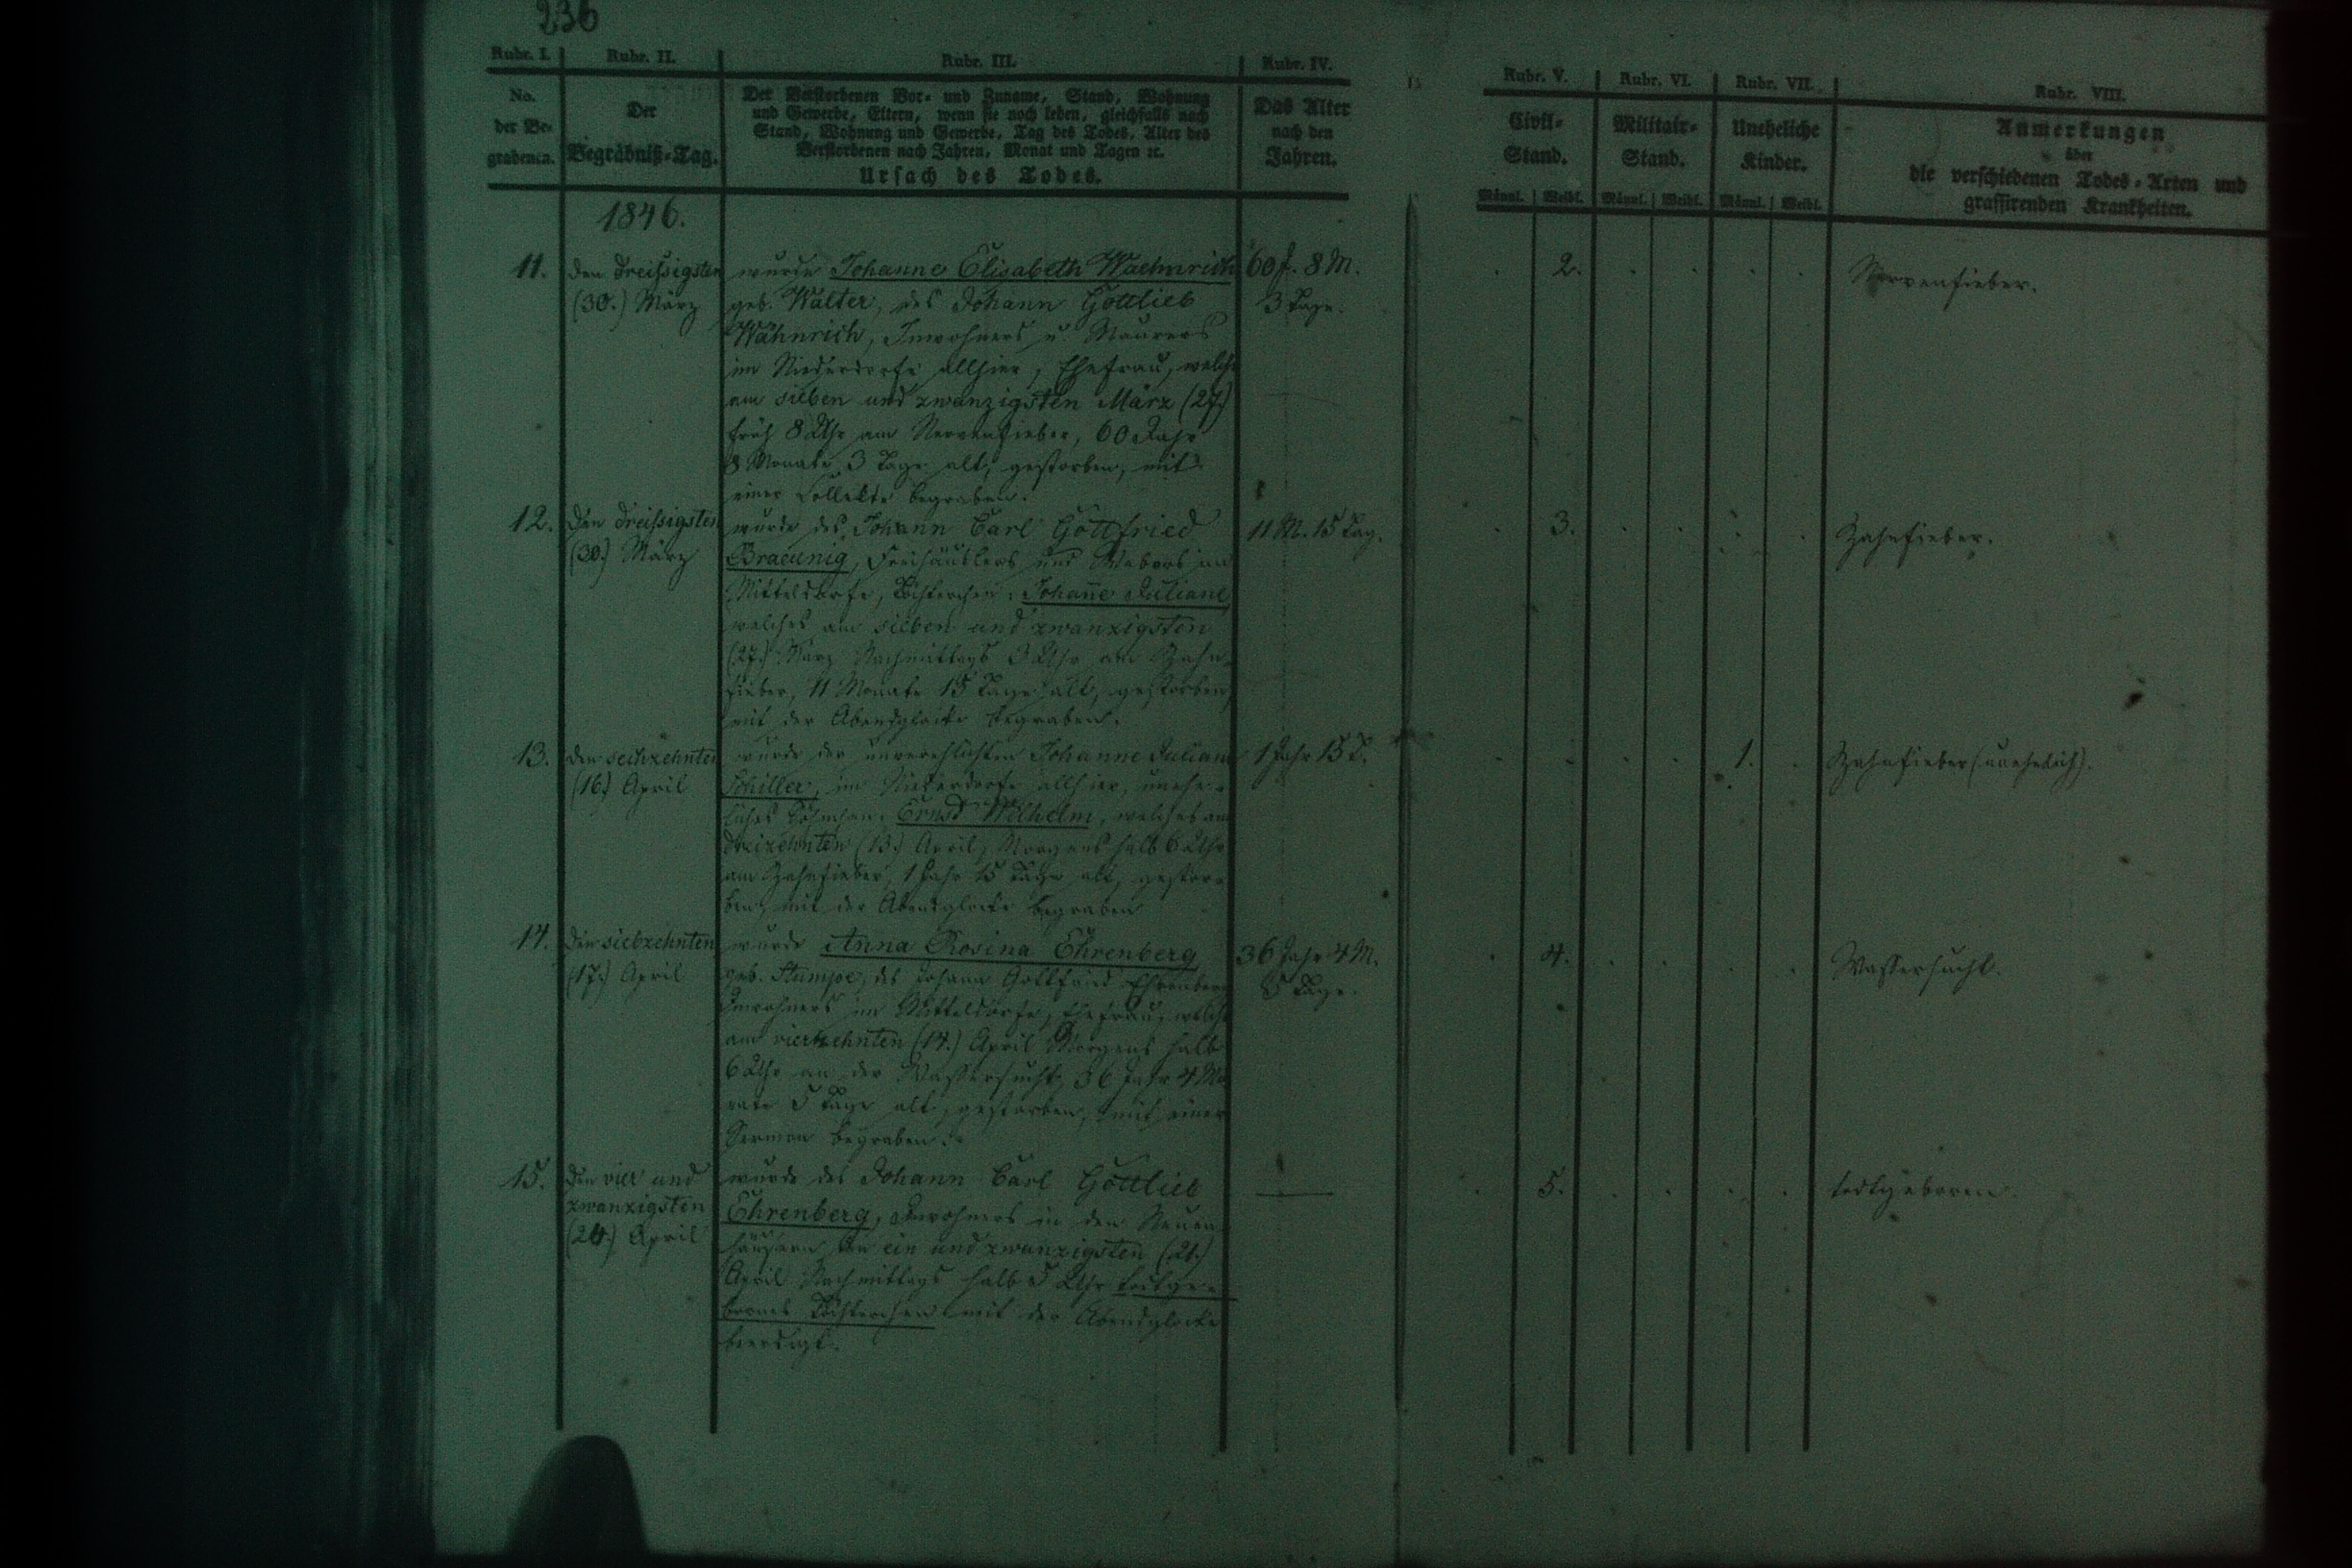 236
Rubr. I.
Rubr. II.
Rubr. III.
Rubr. IV.
Rubr. V.
Rubr. VI.
Rubr. VII.
Rubr. VIII.
No.
der Be-
grabenen.
Der
Begräbniß-Tag.
Der Verstorbenen Vor- und Zuname, Stand, Wohnung
und Gewerbe, Eltern, wenn sie noch leben, gleichfalls nach
Stand, Wohnung und Gewerbe, Tag des Todes, Alter des
Verstorbenen nach Jahren, Monat und Tagen ꝛc.
Ursach des Todes.
Das Alter
nach den
Jahren.
Civil-
Stand.
Militair-
Stand.
Uneheliche
Kinder.
Anmerkungen
über
die verschiedenen Todes-Arten und
grassirenden Krankheiten.
Männl. Weibl. Männl. Weibl. Männl. Weibl.
1846.
11.
den dreissigsten
(30.) März
wurde Johanne Elisabeth Waehnrich
geb. Walter, des Johann Gottlieb
Wähnrich, Inwohners u. Maurers
im Niederdorfe allhier, Ehefrau, welche
am sieben und zwanzigsten März (27.)
früh 8 Uhr am Nervenfieber, 60 Jahr
8 Monate 3 Tage alt, gestorben, mit
einer Collekte begraben.
60 J. 8 M.
3 Tage.
2.
Nervenfieber.
12.
Den dreissigsten
(30.) März
wurde des Johann Carl Gottfried
Braeunig, Freihäuslers und Webers im
Mitteldorfe, Töchterchen: Johanne Juliane
welches am sieben und zwanzigsten
(27.) März Nachmittags 3 Uhr am Zahn-
fieber, 11 Monate 15 Tage alt, gestorben,
mit der Abendglocke begraben.
11 M. 15 Tag.
3.
Zahnfieber.
13.
den sechzehnten
(16.) April
wurde der unverehlichten Johanne Juliane
Schiller, im Niederdorfe allhier, unehe-
liches Söhnchen: Ernst Wilhelm, welches am
dreizehnten (13.) April, Morgens halb 6 Uhr
am Zahnfieber, 1 Jahr 15 Tage alt, gestor-
ben, mit der Abendglocke begraben
1 Jahr 15 T.
1.
Zahnfieber (unehelich).
14.
Den siebzehnten
(17.) April
wurde Anna Rosina Ehrenberg
geb. Stumpe, des Johann Gottfried Ehrenberg
Inwohners im Mitteldorfe, Ehefrau, welche
am vierzehnten (14.) April Morgens halb
6 Uhr an der Wassersucht, 36 Jahr 4 Mo
nate 5 Tage alt, gestorben, mit einer
Sermon begraben.
36 Jahr 4 M.
5 Tage.
4.
Wassersucht.
15.
Den vier und
zwanzigsten
(24.) April
wurde des Johann Carl Gottlieb
Ehrenberg, Inwohners in den Neuen-
häusern den ein und zwanzigsten (21.)
April Nachmittags halb 5 Uhr todtge-
bornes Töchterchen mit der Abendglocke
beerdigt.
5.
todtgeboren.